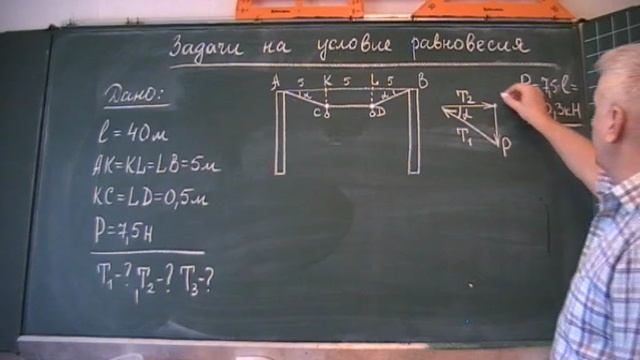 Задачи на условие равновесия
Дано:
l = 40м
AK=KL=LB=5м
KC=LD=0,5м
P=7,5н
T₁-? T₂-? T₃-?
A 5 K 5 L 5 B
α α
C D
T₂
α
T₁
P
P=7,5·l=
0,3кН